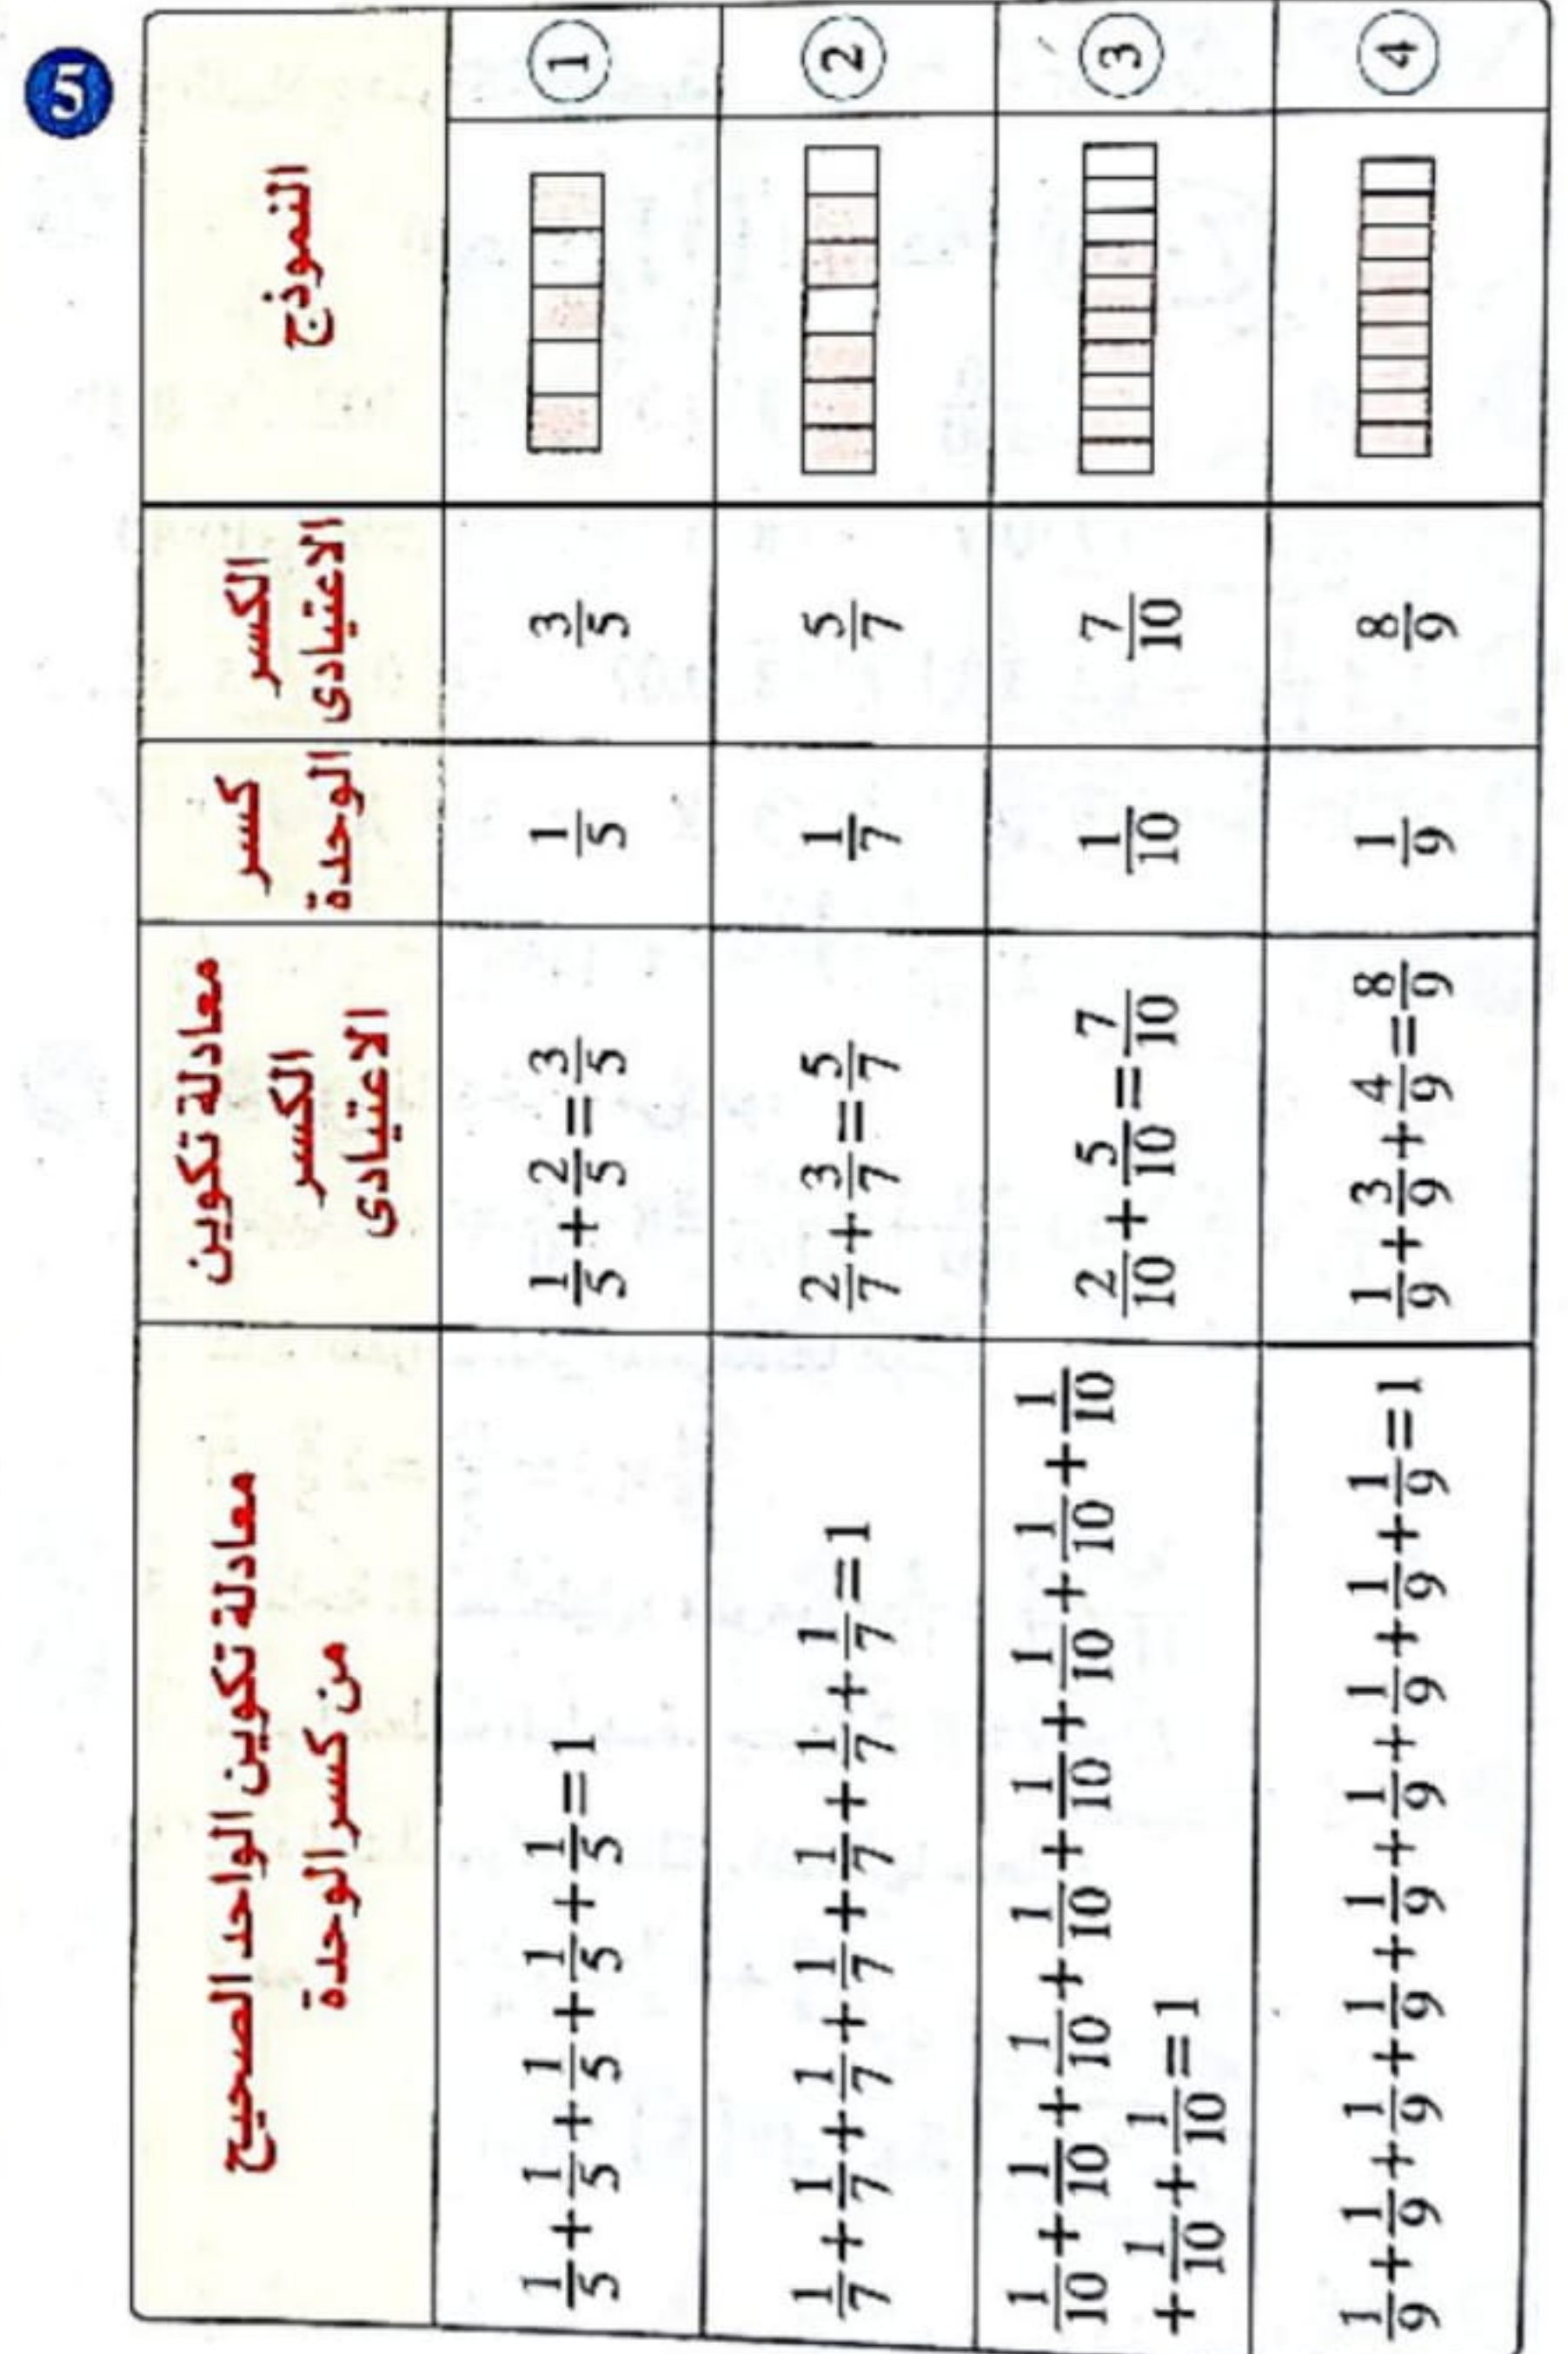 5
النموذج
الكسر
الاعتيادى
كسر
الوحدة
معادلة تكوين
الكسر
الاعتيادى
معادلة تكوين الواحد الصحيح
من كسر الوحدة
1
3/5
1/5
1/5 + 2/5 = 3/5
1/5 + 1/5 + 1/5 + 1/5 + 1/5 = 1
2
5/7
1/7
2/7 + 3/7 = 5/7
1/7 + 1/7 + 1/7 + 1/7 + 1/7 + 1/7 + 1/7 = 1
3
7/10
1/10
2/10 + 5/10 = 7/10
1/10 + 1/10 + 1/10 + 1/10 + 1/10 + 1/10 + 1/10 + 1/10
+ 1/10 + 1/10 = 1
4
8/9
1/9
1/9 + 3/9 + 4/9 = 8/9
1/9 + 1/9 + 1/9 + 1/9 + 1/9 + 1/9 + 1/9 + 1/9 + 1/9 = 1